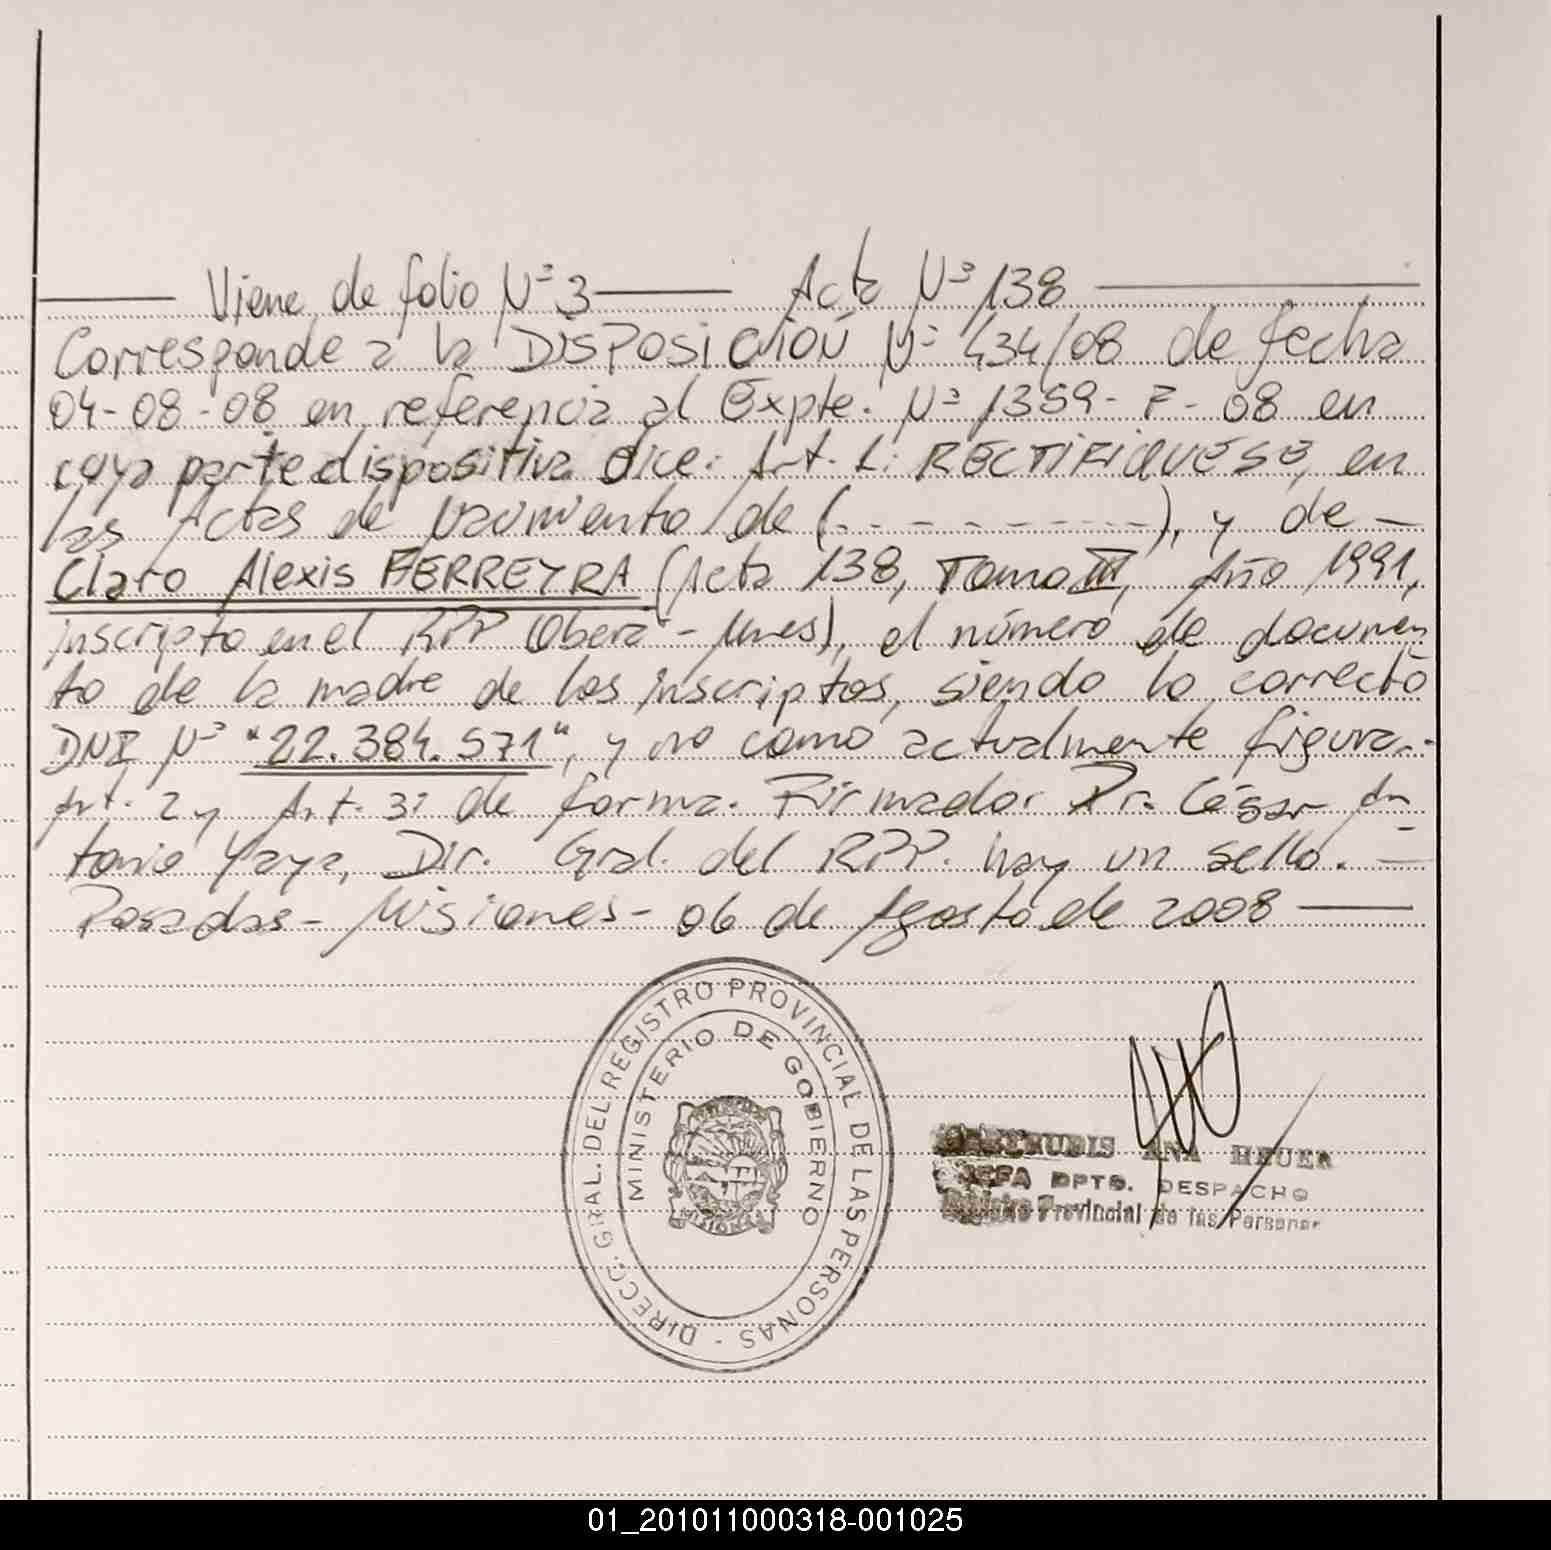 Viene de folio Nº 3 —— Acta Nº 138 ——
Corresponde a la DISPOSICIÓN Nº 434/08 de fecha
04-08-08 en referencia al Expte. Nº 1359-F-08 en
cuya parte dispositiva dice: Art. 1: RECTIFIQUESE, en
las Actas de Nacimiento de (- - - - - - - - -), y de —
Claro Alexis FERREYRA (Acta 138, Tomo III, Año 1991,
inscripto en el RPP Oberá - Mnes), el número de documen
to de la madre de los inscriptos, siendo lo correcto
DNI Nº "22.384.571", y no como actualmente figura.-
Art. 2 y Art. 3: de forma. Firmado: Dr. César An
tonio Yaya, Dir. Gral. del RPP. hay un sello. —
Posadas - Misiones - 06 de Agosto de 2008 ——
DIRECC. GRAL. DEL REGISTRO PROVINCIAL DE LAS PERSONAS -
MINISTERIO DE GOBIERNO
MISIONES
GERTRUDIS ANA HEUER
JEFA DPTO. DESPACHO
Registro Provincial de las Personas
01_201011000318-001025